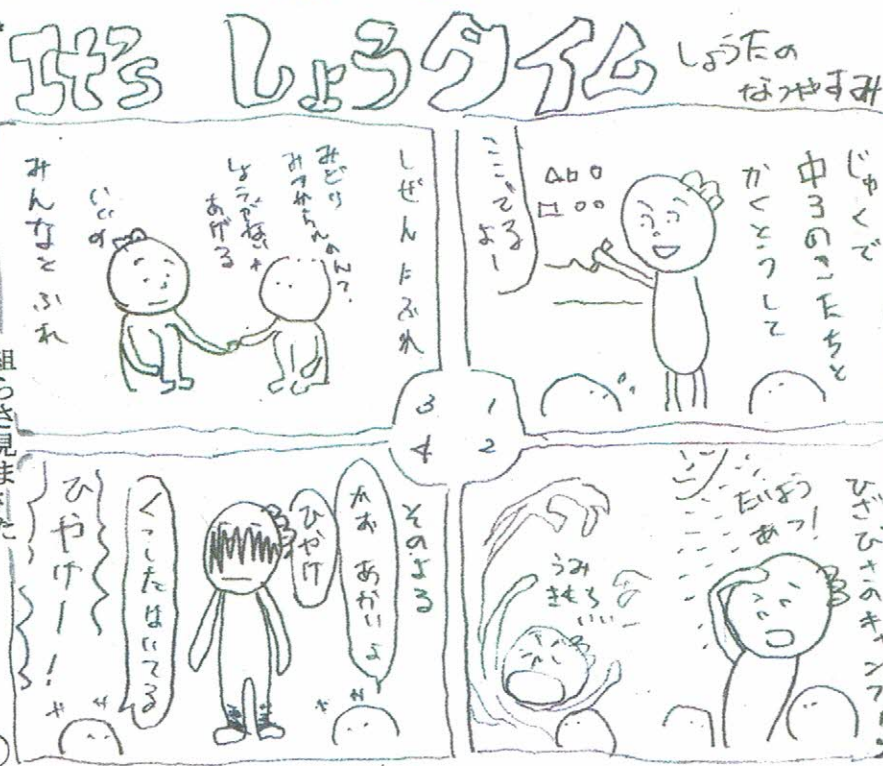 It's しょうタイム
しょうたの
なつやすみ
じゅくで
中3のこたちと
かくとうして
ここでるよー
1
2
3
4
ひさびさのキャンプ!
たいよう
あっ!
うみ
きもち
いい
しぜんにふれ
みどり
しょうがないな
あげる
いいの
みんなとふれ
そのよる
かお あかいよ
ひやけ
くつしたはいてる
ひやけー!
組らさ見ました